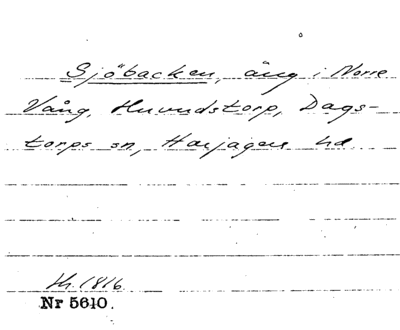 Sjöbacken, äng i Norre
Vång, Huvudstorp, Dags-
torps sn, Harjagers hd
1816
Nr 5610.